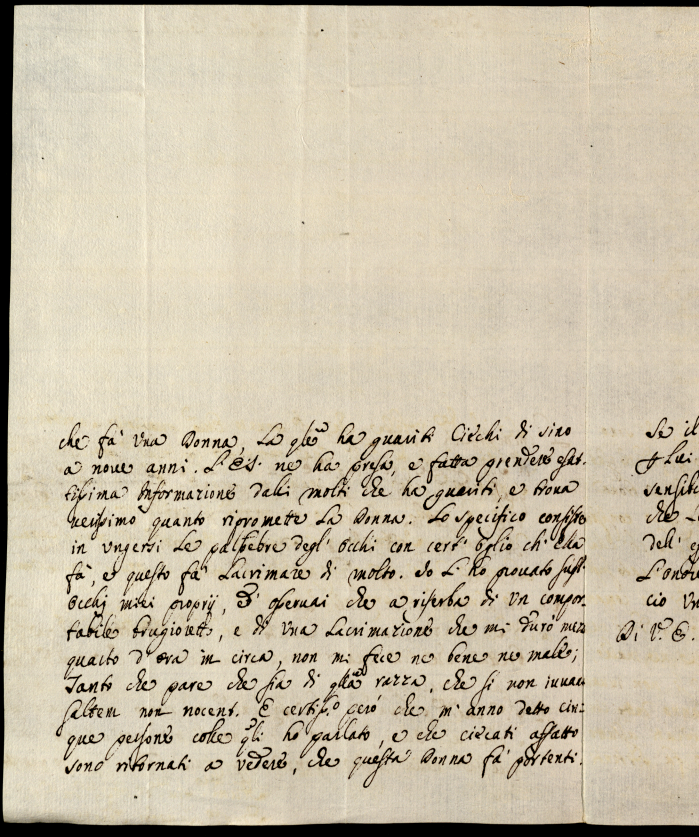 che fà una Donna, La qle ha guariti Ciechi di sino
a nove anni. L'E.S. ne ha presa, e fatta prendere esat-
tissima Informazione dalli molti che ha guariti, e trova
verissimo quanto ripromette La Donna. Lo specifico consiste
in ungersi Le palpebre degl' occhi con cert' oglio ch' ella
fà, e questo fà Lacrimare di molto. Io L'ho provato su gli
occhi miei proprij, ed osservai che a riserba di un compor-
tabile brugiore, e di una Lacrimazione che mi durò mezzo
quarto d'ora in circa, non mi fece ne bene ne male;
Tanto che pare che sia di qlla razza, che si non iuvant
saltem non nocent. È certiss.o però che m'anno detto cin-
que persone colle qli ho parlato, e che ciecati affatto
sono ritornati a vedere, che questa Donna fà portenti.
Se il
Lui
sensibi
che L
dell'
L'onor
cio Un
Di V. E.